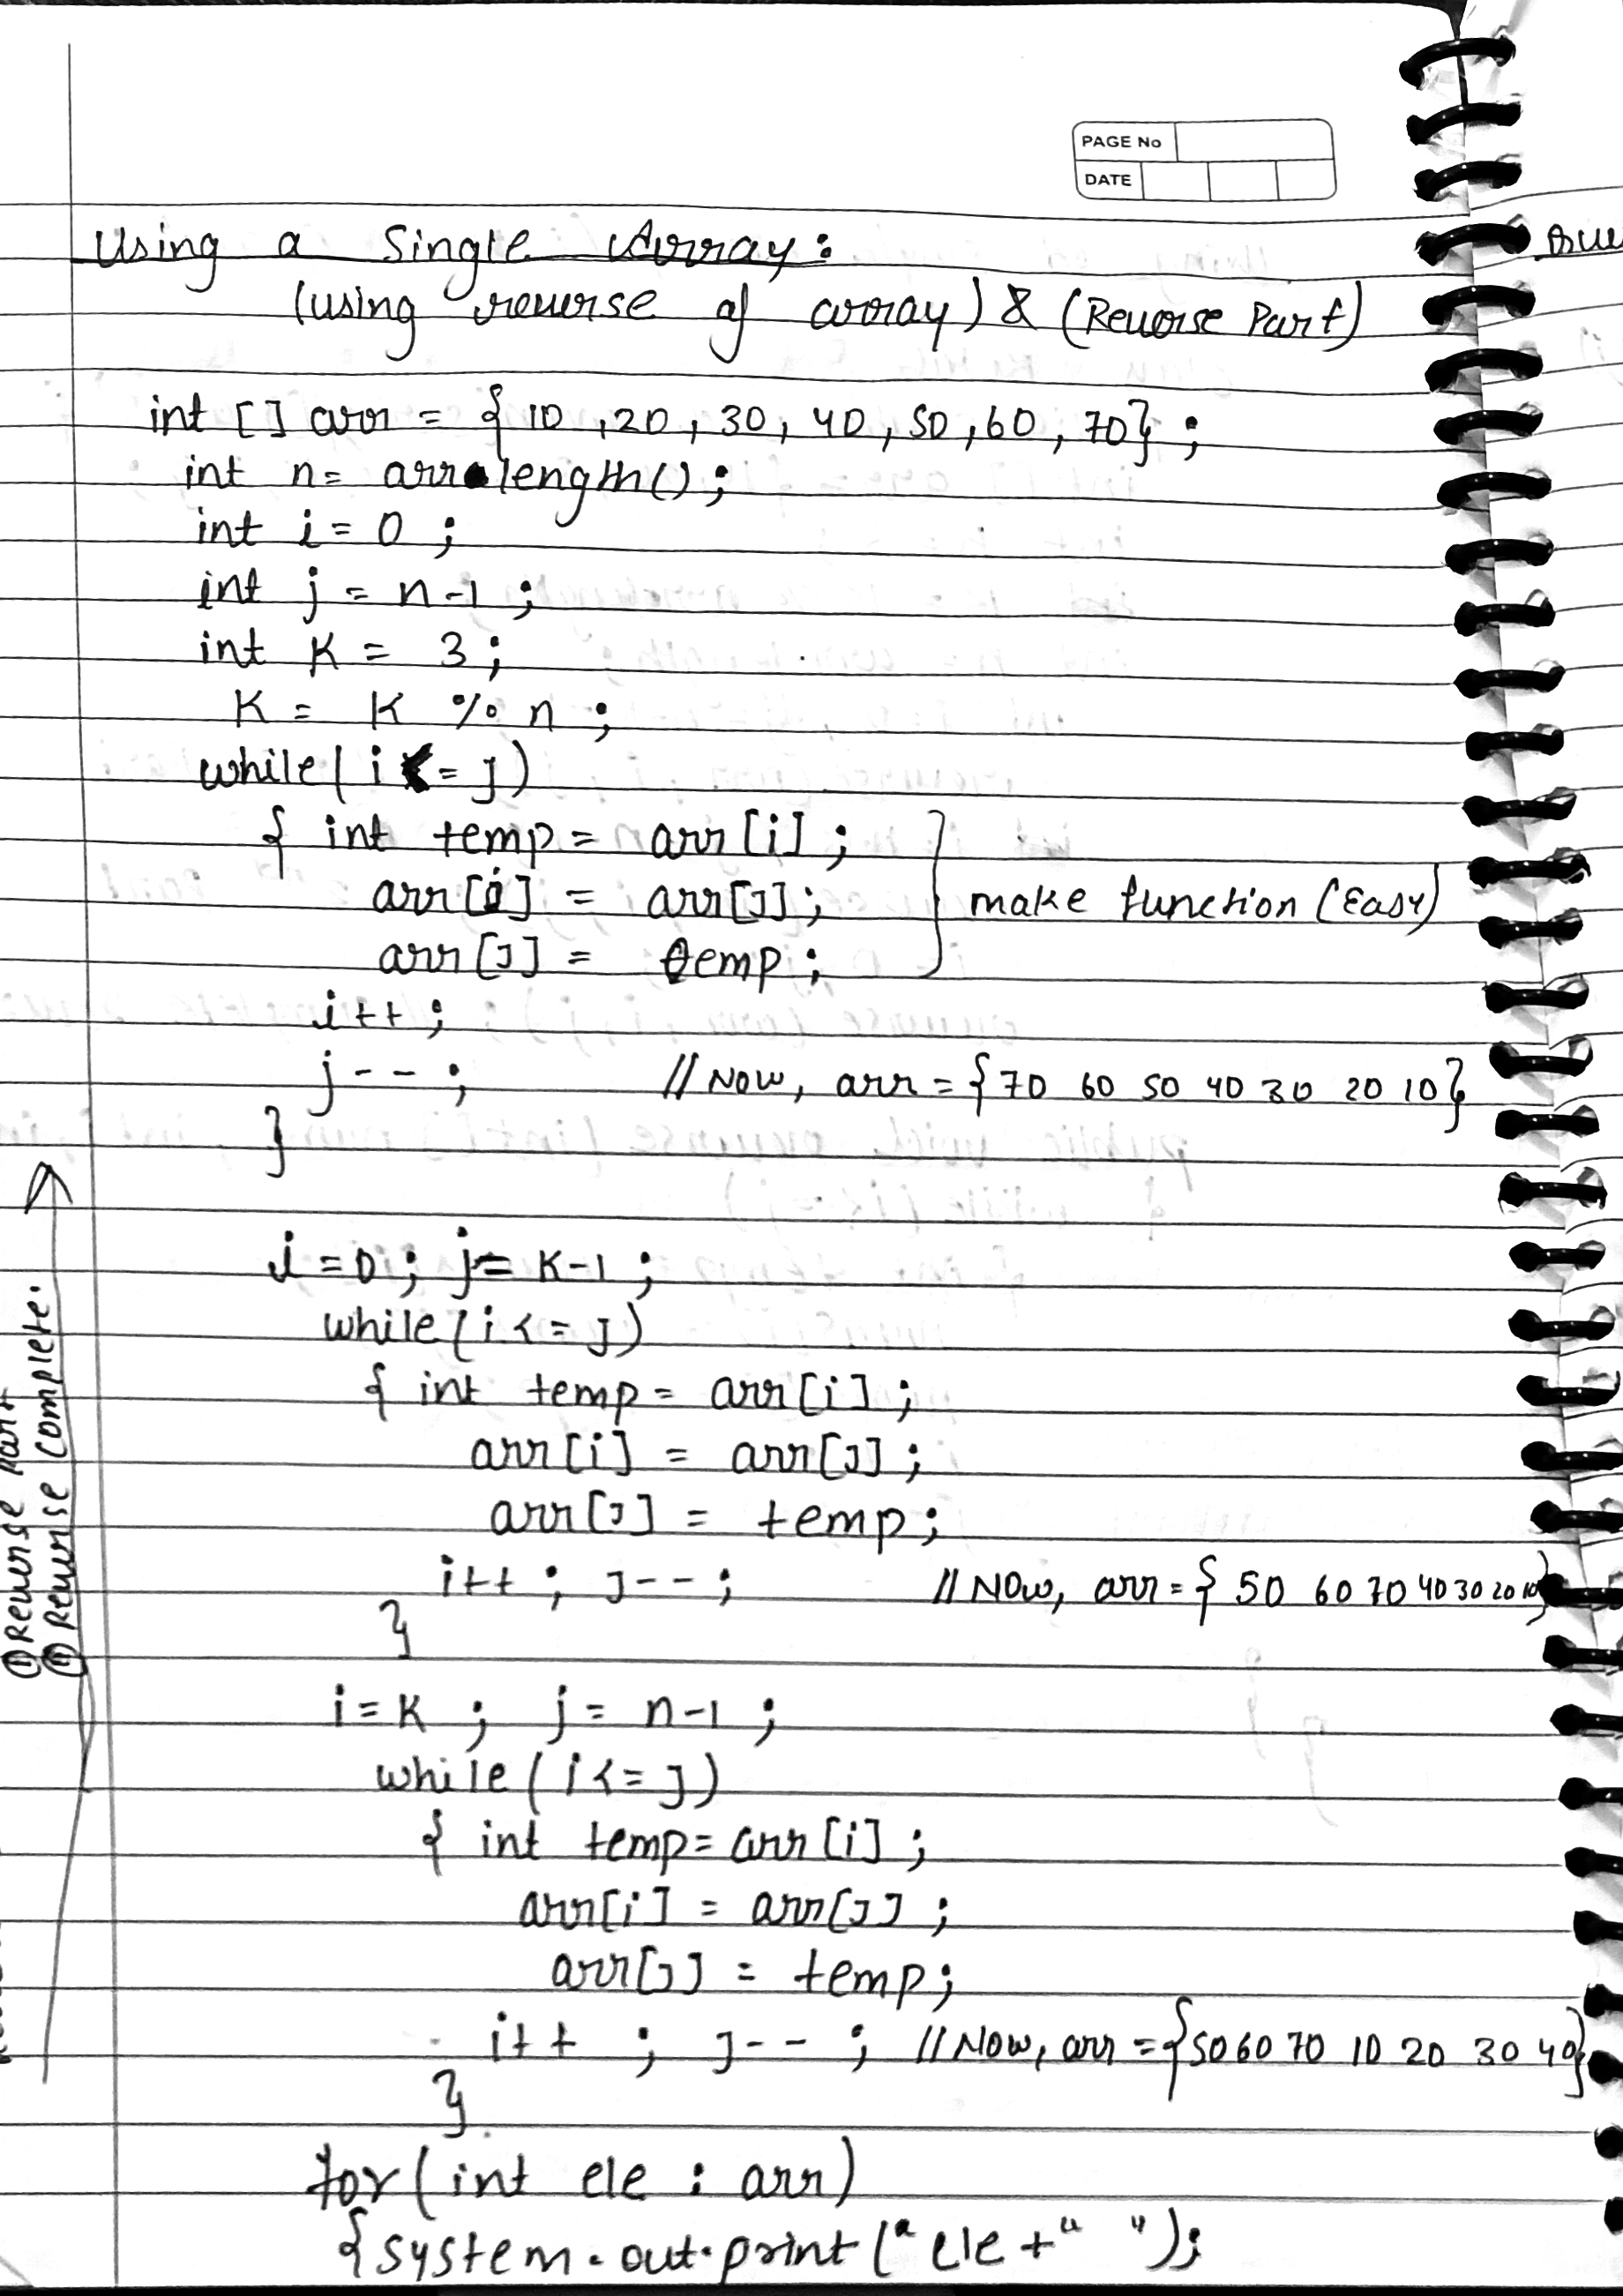 PAGE No
DATE
Using a Single Array:
(using reverse of array) & (Reverse Part)
int [] arr = {10, 20, 30, 40, 50, 60, 70};
int n= arr.length();
int i= 0 ;
int j = n-1 ;
int K = 3;
K = K % n ;
while( i <= j)
{ int temp = arr [i] ;
arr[i] = arr[j]; make function (Easy)
arr[j] = temp ;
i++ ;
j-- ; // Now, arr = {70 60 50 40 30 20 10}
}
i = 0 ; j= K-1 ;
while (i <= j)
{ int temp = arr[i] ;
arr[i] = arr[j] ;
arr[j] = temp;
i++ ; j-- ; // Now, arr = { 50 60 70 40 30 20 10}
}
i = K ; j = n-1 ;
while ( i <= j)
{ int temp = arr [i] ;
arr[i] = arr[j] ;
arr[j] = temp;
i++ ; j-- ; // Now, arr = {50 60 70 10 20 30 40}
}
for ( int ele : arr)
{system.out.print (" ele +" ");
① reverse part
② reverse complete.